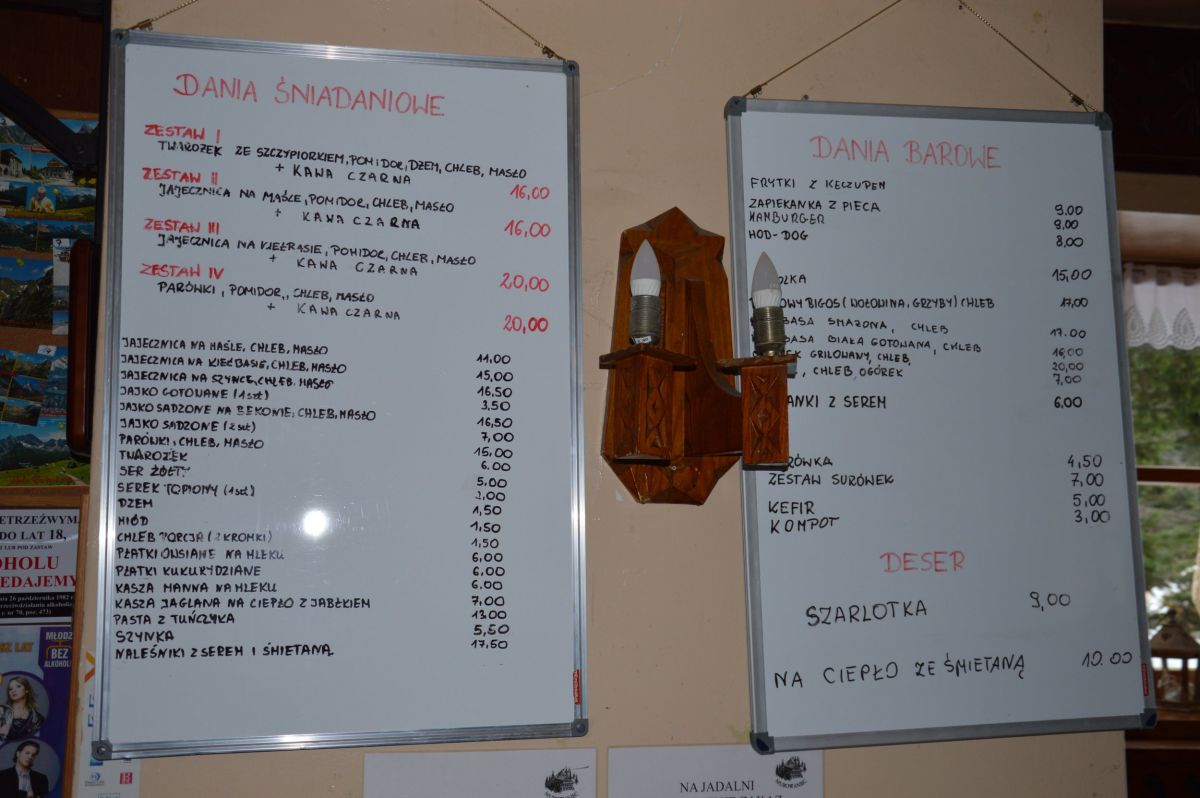 DANIA ŚNIADANIOWE
ZESTAW I
TWAROŻEK ZE SZCZYPIORKIEM, POMIDOR, DŻEM, CHLEB, MASŁO
+ KAWA CZARNA
16,00
ZESTAW II
JAJECZNICA NA MAŚLE, POMIDOR, CHLEB, MASŁO
+ KAWA CZARNA
16,00
ZESTAW III
JAJECZNICA NA KIEŁBASIE, POMIDOR, CHLEB, MASŁO
+ KAWA CZARNA
20,00
ZESTAW IV
PARÓWKI, POMIDOR, CHLEB, MASŁO
+ KAWA CZARNA
20,00
JAJECZNICA NA MAŚLE, CHLEB, MASŁO 11,00
JAJECZNICA NA KIEŁBASIE, CHLEB, MASŁO 15,00
JAJECZNICA NA SZYNCE, CHLEB, MASŁO 16,50
JAJKO GOTOWANE (1 szt) 3,50
JAJKO SADZONE NA BEKONIE, CHLEB, MASŁO 16,50
JAJKO SADZONE (2 szt) 7,00
PARÓWKI, CHLEB, MASŁO 15,00
TWAROŻEK 6.00
SER ŻÓŁTY 5,00
SEREK TOPIONY (1 szt) 2,00
DŻEM 1,50
MIÓD 1,50
CHLEB PORCJA (2 KROMKI) 1,50
PŁATKI OWSIANE NA MLEKU 6,00
PŁATKI KUKURYDZIANE 6,00
KASZA MANNA NA MLEKU 6.00
KASZA JAGLANA NA CIEPŁO Z JABŁKIEM 7,00
PASTA Z TUŃCZYKA 13.00
SZYNKA 5,50
NALEŚNIKI Z SEREM I ŚMIETANĄ 17,50
DANIA BAROWE
FRYTKI Z KECZUPEM
ZAPIEKANKA Z PIECA 9.00
HAMBURGER 9,00
HOD-DOG 8,00
15,00
BIGOS (WOŁOWINA, GRZYBY) CHLEB 17,00
SMAŻONA, CHLEB 17.00
BIAŁA GOTOWANA, CHLEB 16,00
GRILOWANY, CHLEB, 20,00
, CHLEB, OGÓREK 7,00
Z SEREM 6.00
4,50
ZESTAW SURÓWEK 7,00
KEFIR 5,00
KOMPOT 3,00
DESER
SZARLOTKA 9,00
NA CIEPŁO ZE ŚMIETANĄ 10.00
DO LAT 18,
LUB POD ZASTAW
26 października 1982
nr 70, poz. 473)
LAT
BEZ
NA JADALNI